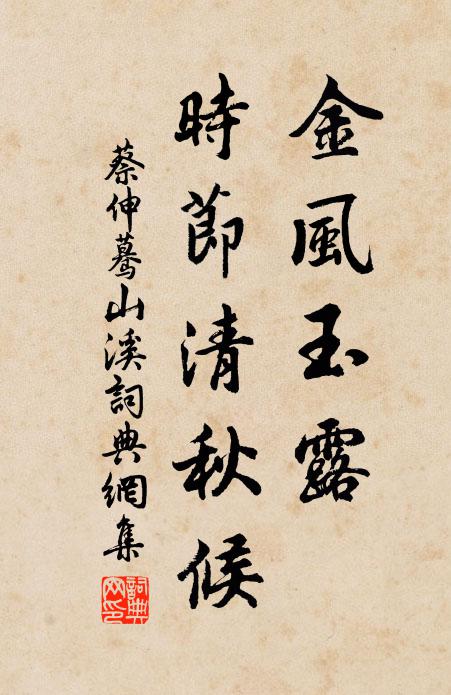 金風玉露
時節清秋候
蔡伸驀山溪詞典網集
詞典網印